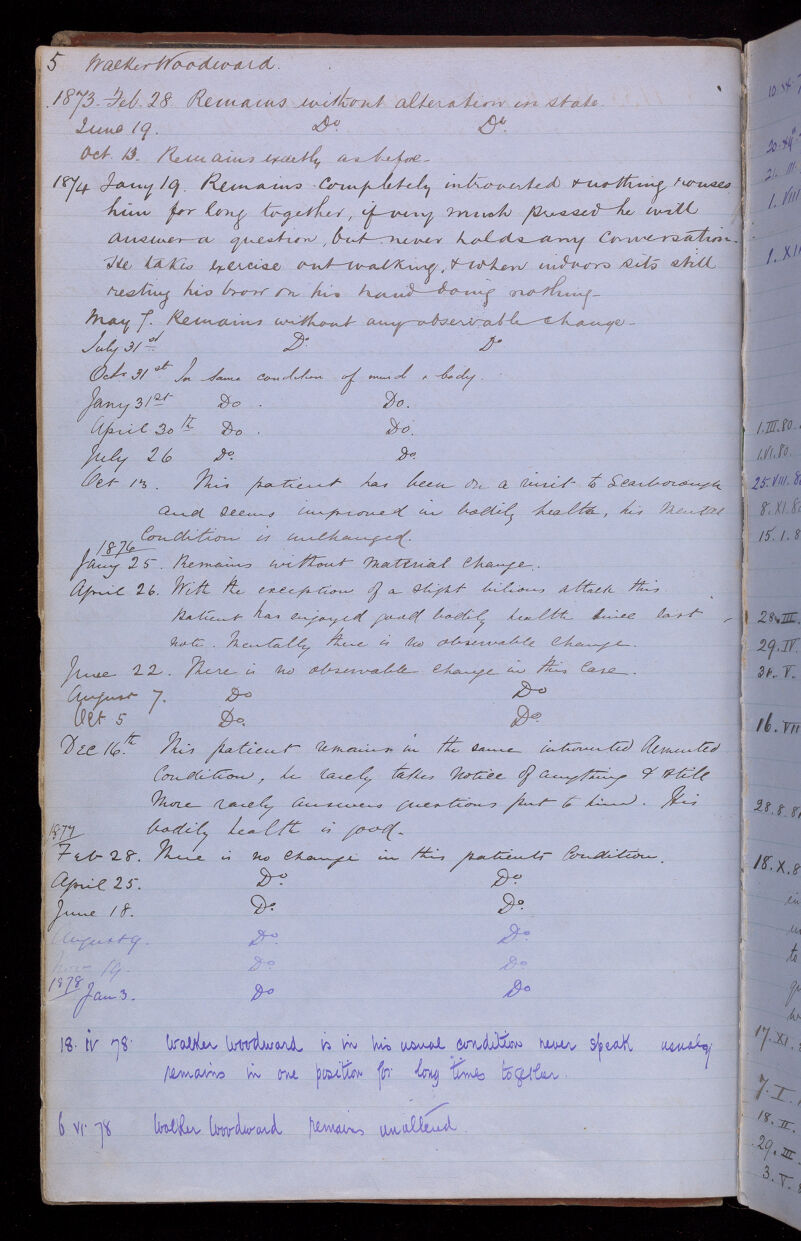 5 Walker Woodward.
1873. Feb. 28. Remains without alteration in state.
June 19. Do Do
Oct. 13. Remains exactly as before -
1874 Jany 19. Remains completely introverted & nothing rouses
him for long together, if very much pressed he will
answer a question, but never holds any conversation.
He takes exercise out walking, & when indoors sits still
resting his brow on his hand doing nothing -
May 7. Remains without any observable change -
July 31st Do Do
Oct. 31st In same condition of mind & body.
Jany 31st Do. Do.
April 30th Do. Do.
July 26 Do. Do.
Oct 13. This patient has been on a visit to Scarborough
and seems improved in bodily health, his mental
condition is unchanged.
1876
Jany 25. Remains without material change.
April 26. With the exception of a slight bilious attack this
patient has enjoyed good bodily health since last
note. Mentally there is no observable change.
June 22. There is no observable change in this Case.
August 7. Do Do
Oct 5 Do. Do.
Dec 16.th This patient remains in the same introverted demented
Condition, he rarely takes notice of anything & still
more rarely answers questions put to him. His
bodily health is good.
1877
Feb 28. There is no change in this patients Condition.
April 25. Do. Do.
June 18. Do. Do.
August 9. Do. Do.
Nov 19. Do. Do
1878
Jan 3. Do Do
18. iv 78. Walker Woodward is in his usual condition never speak usualy
remains in one position for long times together.
6 vi 78 Walker Woodward remains unaltered.
1.III.80.
1.VI.80.
25.VIII.8
8.XI.8
15.1.8
29.IV.
31.V.
16.VII
28.8.8
18.X.8
17.XI.
7.I.
18.II.
29.III
3.V.